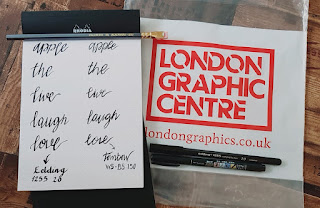 RHODIA
apple apple
the the
live live
laugh laugh
love love
Edding Tombow
1255 2.0 WS-BS 150
LONDON
GRAPHIC
CENTRE
londongraphics.co.uk